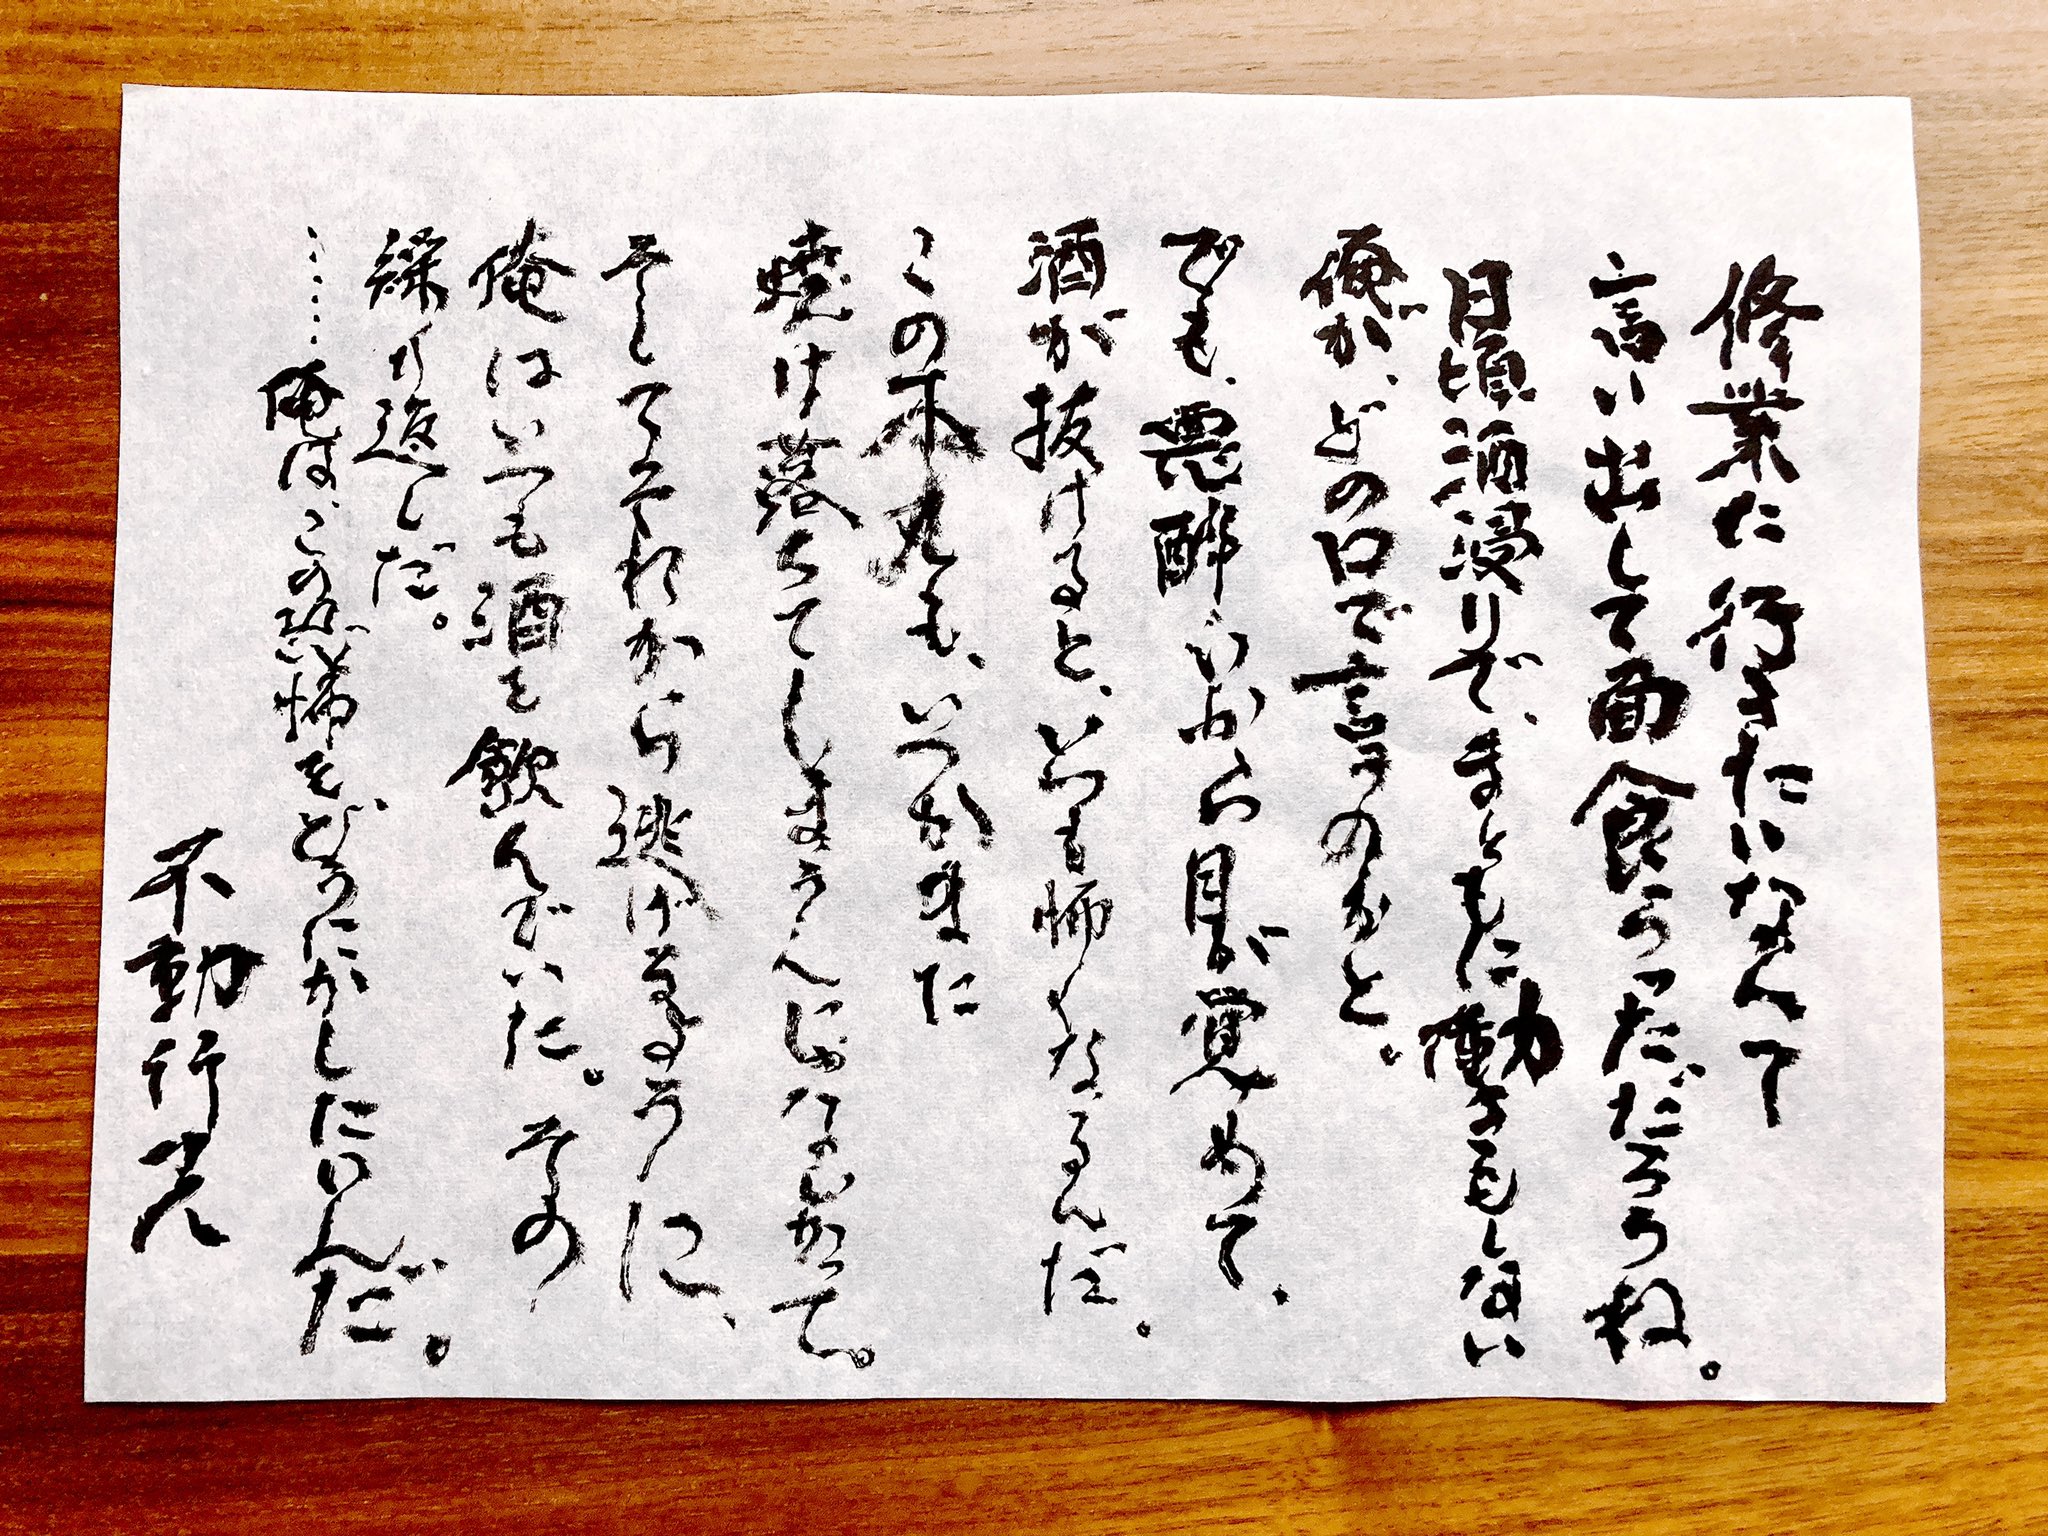 修業に行きたいなんて
言い出して面食らっただろうね。
日頃酒浸りで、まともに働きもしない
俺が、どの口で言うのかと。
でも、悪酔いから目が覚めて、
酒が抜けると、いつも怖くなるんだ。
この本丸も、いつかまた
焼け落ちてしまうんじゃないかって。
そしてそれから逃げるように、
俺はいつも酒を飲んでいた。その
繰り返しだ。
……俺は、この恐怖をどうにかしたいんだ。
不動行光